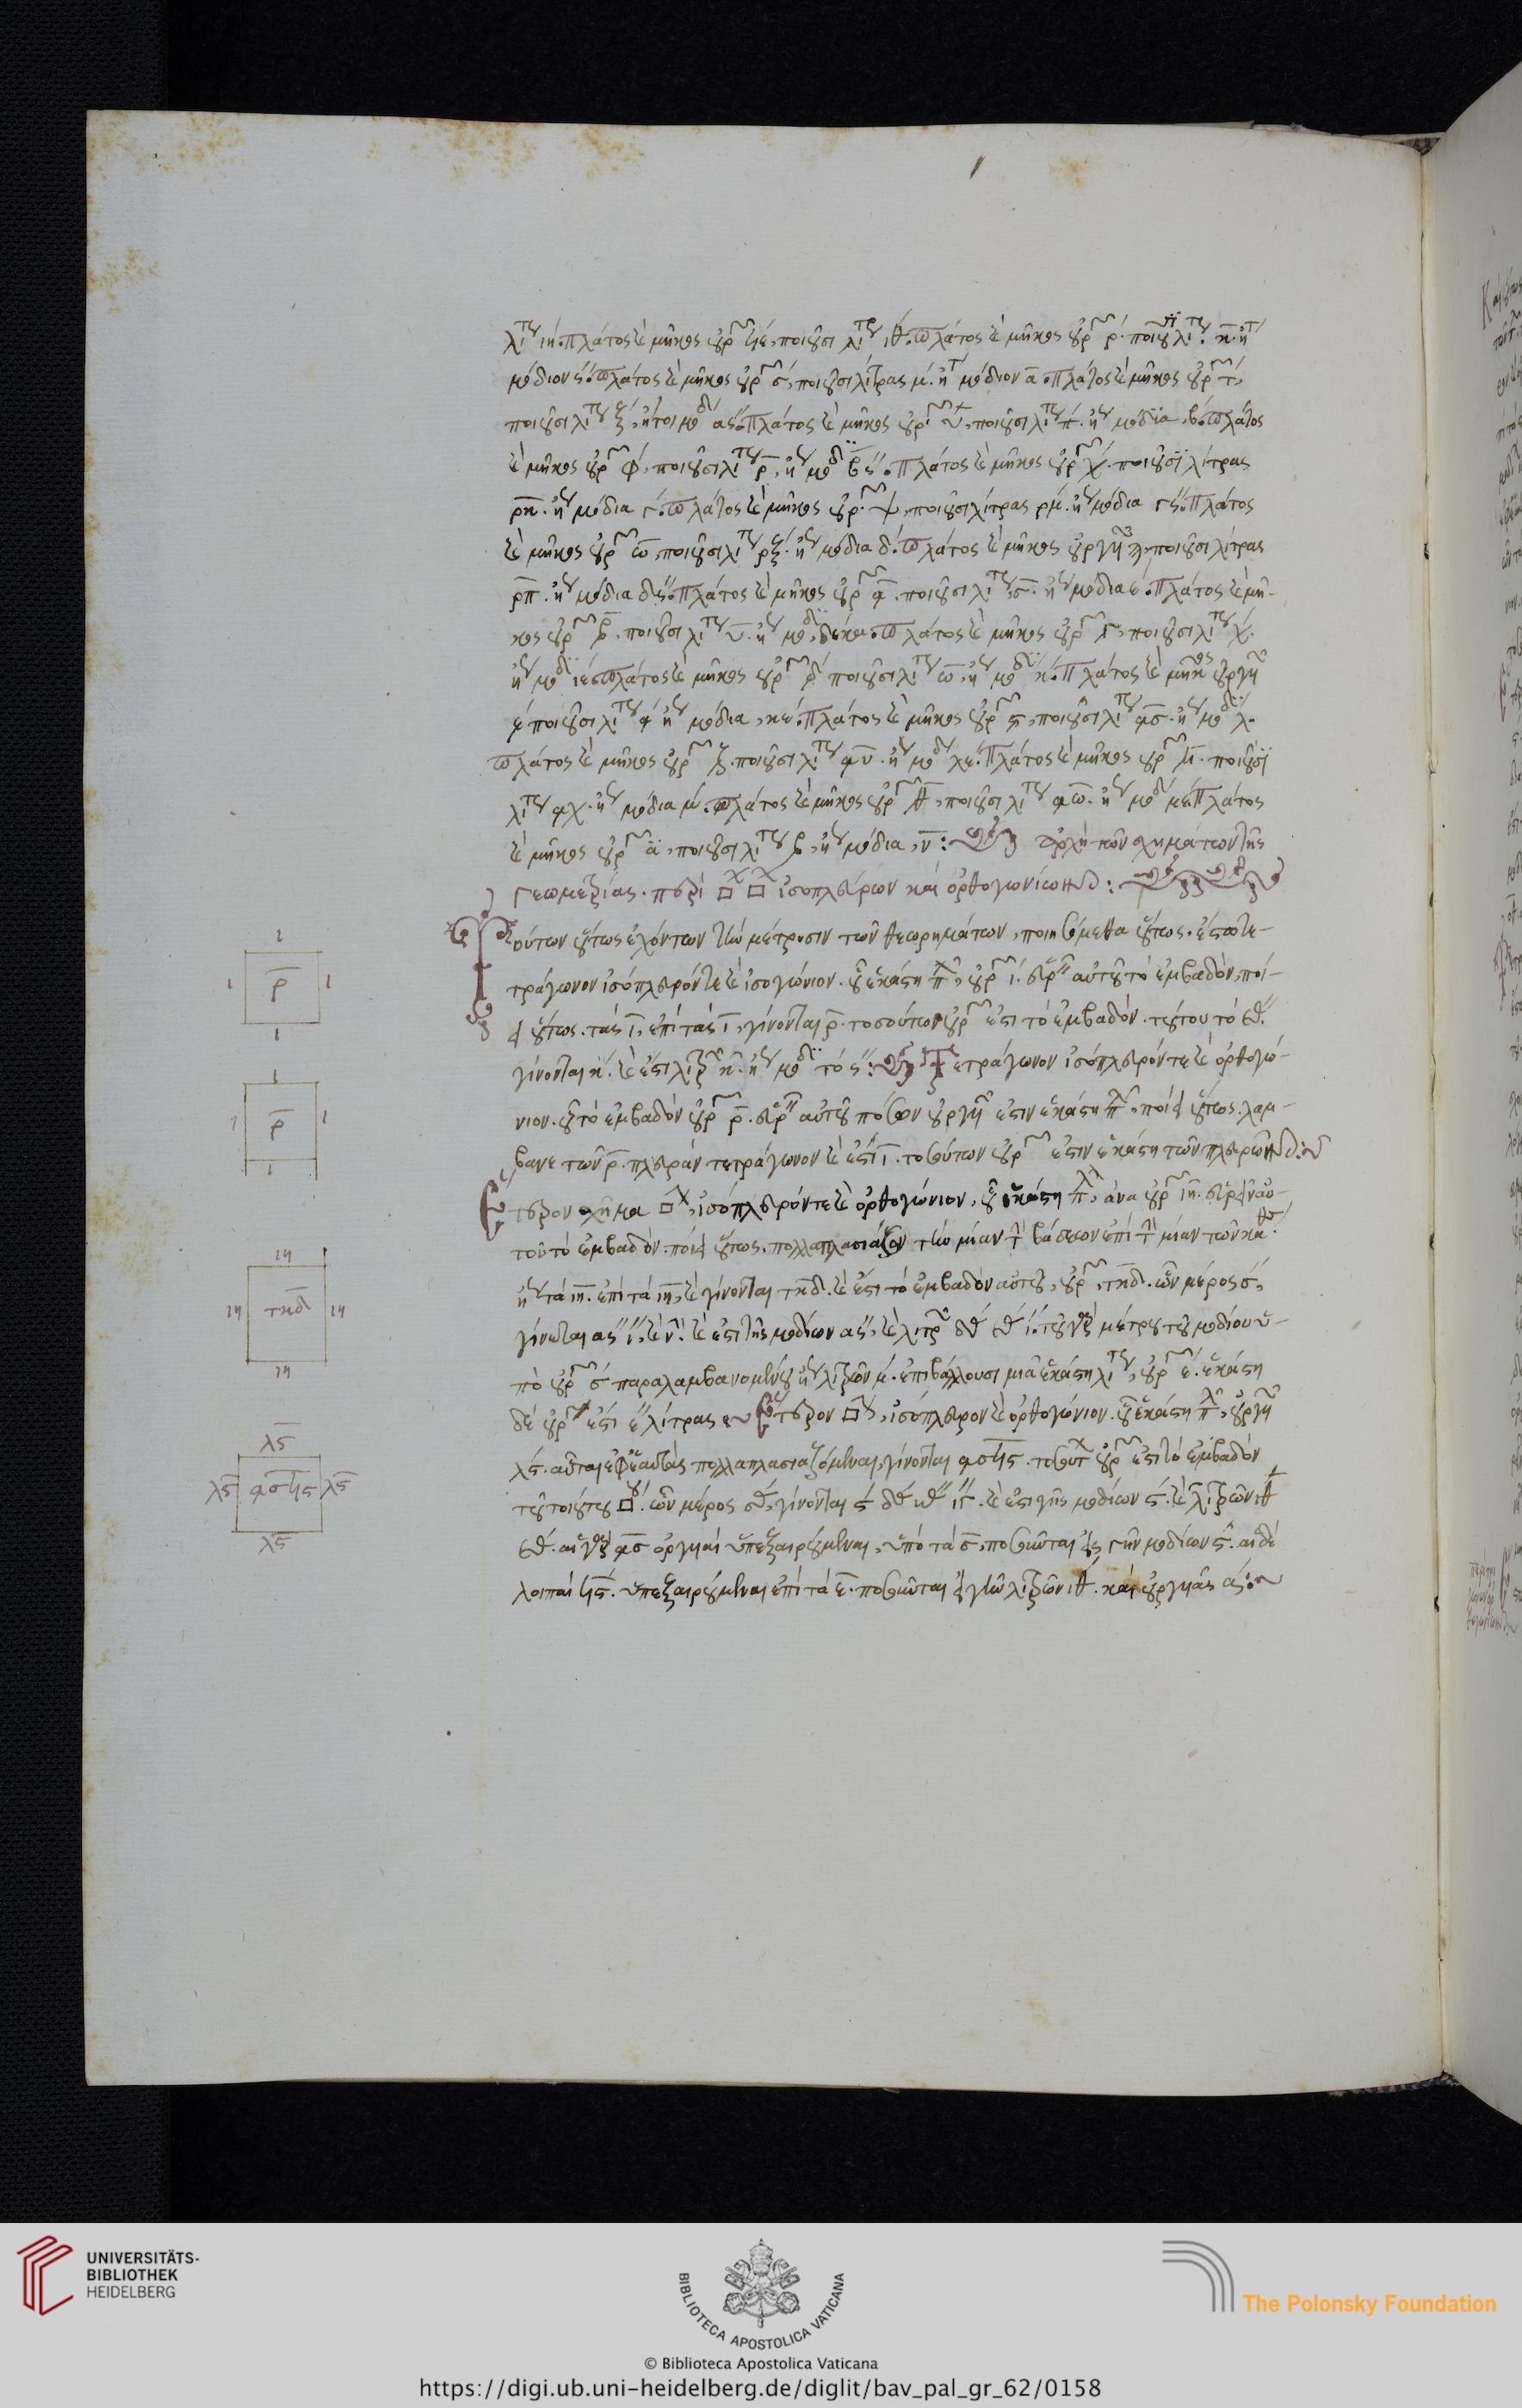 λι ιη. πλάτος καὶ μῆκος ὀργ ϟε, ποιοῦσι λι ιθ. πλάτος καὶ μῆκος ὀργ ρ. ποιοῦσι λι κ. ἤτ
μόδιον ς. πλάτος καὶ μῆκος ὀργ σ, ποιοῦσι λίτρας μ. ἤτ μόδιον α. πλάτος καὶ μῆκος ὀργ τ,
ποιοῦσι λι ξ, ἤτοι μοδ ας. πλάτος καὶ μῆκος ὀργ υ, ποιοῦσι λι π. ἤγ μοδια, β. πλάτος
καὶ μῆκος ὀργ φ, ποιοῦσι λι ρ, ἤγ μοδ βς. πλάτος καὶ μῆκος ὀργ χ. ποιοῦσι λίτρας
ρκ. ἤγ μόδια γ. πλάτος καὶ μῆκος ὀργ ψ, ποιοῦσι λίτρας ρμ. ἤγ μόδια γς. πλάτος
καὶ μῆκος ὀργ ω, ποιοῦσι λι ρξ. ἤγ μόδια δ. πλάτος καὶ μῆκος ὀργυι ϡ, ποιοῦσι λίτρας
ρπ. ἤγ μόδια δς. πλάτος καὶ μῆκος ὀργ ͵α. ποιοῦσι λι σ. ἤγ μόδια ε. πλάτος καὶ μῆ-
κος ὀργ ͵β, ποιοῦσι λι υ. ἤγ μοδ, δέκα. πλάτος καὶ μῆκος ὀργ ͵γ, ποιοῦσι λι χ.
ἤγ μοδ ιε πλάτος καὶ μῆκος ὀργ ͵δ ποιοῦσι λι ω, ἤγ μοδ κ. πλάτος καὶ μῆκος ὀργυι
͵ε ποιοῦσι λι ͵α ἤγ μόδια, κε. πλάτος καὶ μῆκος ὀργ ͵ς, ποιοῦσι λι ͵ασ. ἤγ μοδ λ.
πλάτος καὶ μῆκος ὀργ ͵ζ. ποιοῦσι λι ͵αυ. ἤγ μοδ λε. πλάτος καὶ μῆκος ὀργ ͵η. ποιοῦσι
λι ͵αχ. ἤγ μόδια μ. πλάτος καὶ μῆκος ὀργ ͵θ, ποιοῦσι λι ͵αω. ἤγ μοδ με. πλάτος
καὶ μῆκος ὀργ ϊ, ποιοῦσι λι ͵β, ἤγ μόδια, ν: ἀρχὴ τῶν σχημάτων τῆς
γεωμετρίας. περὶ □ □ ἰσοπλεύρων καὶ ὀρθογωνίων:
Τούτων οὕτως ἐχόντων τὴν μέτρησιν τῶν θεωρημάτων, ποιησόμεθα οὕτως. ἔστω τε-
τράγωνον ἰσόπλευρόν τε καὶ ἰσογώνιον. οὗ ἑκάστη π, ὀργ ι. εὑρ αὐτοῦ τὸ ἐμβαδόν, ποί-
ει οὕτως. τὰς ι, ἐπὶ τὰς ι, γίνονται ρ. τοσούτων ὀργ ἔσται τὸ ἐμβαδόν. τούτου τὸ
γίνονται κ. καὶ ἔστι λιτρ κ. ἤγ μοδ τὸ ς: Τετράγωνον ἰσόπλευρόν τε καὶ ὀρθογώ-
νιον. οὗ τὸ ἐμβαδὸν ὀργ ρ. εὑρ αὐτοῦ πόσων ὀργυι ἐστιν ἑκάστη π, ποίει οὕτως. λάμ-
βανε τῶν ρ. πλευρὰν τετράγωνον καὶ ἔστι ι. τοσούτων ὀργ ἐστιν ἑκάστη τῶν πλευρῶν:
Ἕτερον σχῆμα □, ἰσόπλευρόν τε καὶ ὀρθογώνιον, οὗ ἑκάστη π, ἀνὰ ὀργ ιη. εὑρεῖν αὐ-
τοῦ τὸ ἐμβαδόν. ποίει οὕτως. πολλαπλασίαζον τὴν μίαν τ βάσεων ἐπὶ τ μίαν τῶν κα.
ἤγ τὰ ιη. ἐπὶ τὰ ιη, καὶ γίνονται τκδ. καὶ ἔστι τὸ ἐμβαδὸν αὐτοῦ, ὀργ, τκδ. ὧν μέρος σ,
γίνεται ας ι, καὶ ν. καὶ ἔστι γῆς μοδίων ας, καὶ λιτρ δ ι. τοῦ γὰρ μέτρου τοῦ μοδίου ὑ-
πὸ ὀργ σ παραλαμβανομένου ἤγ λιτρῶν μ. ἐπιβάλλουσι μιᾷ ἑκάστῃ λι, ὀργ ε. ἑκάστη
δὲ ὀργ ἔστι ε λίτρας Ἕτερον □, ἰσόπλευρον καὶ ὀρθογώνιον. οὗ ἑκάστη π, ὀργυι
λς. αὗται ἐφ' ἑαυτὰς πολλαπλασιαζόμεναι, γίνονται ͵ασϟς. τοσούτ ὀργ ἔστι τὸ ἐμβαδὸν
τοῦ τοιούτου □. ὧν μέρος σ, γίνονται ς. καὶ ἔστι γῆς μοδίων ς. καὶ λιτρῶν ιθ
αἱ γὰρ ͵ασ ὀργυιαὶ ὑπεξαιρούμεναι, ὑπὸ τὰ σ, ποσοῦνται εἰς γῆν μοδίων ς. αἱ δὲ
λοιπαὶ ϟς. ὑπεξαιρούμεναι ἐπὶ τὰ ε. ποσοῦνται εἰς γῆν λιτρῶν ιθ. καὶ ὀργυιᾶς α:
ι
ι ρ ι
ι
ι
ι ρ ι
ι
ιη
ιη τκδ ιη
ιη
λς
λς ͵ασϟς λς
λς
UNIVERSITÄTS-
BIBLIOTHEK
HEIDELBERG
BIBLIOTECA APOSTOLICA VATICANA
The Polonsky Foundation
© Biblioteca Apostolica Vaticana
https://digi.ub.uni-heidelberg.de/diglit/bav_pal_gr_62/0158